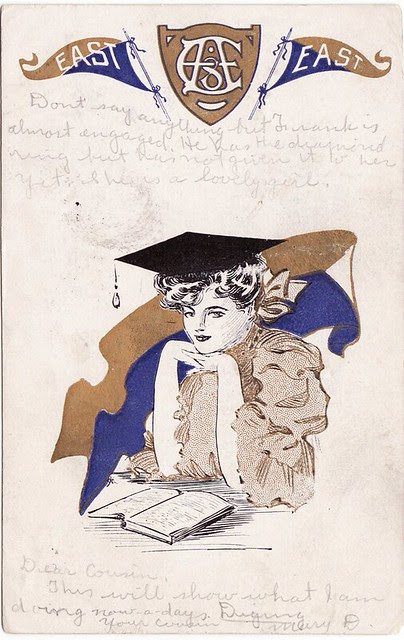 EAST
EAST
Dont say anything but Frank is
almost engaged. He has the diamond
ring but has not given it to her
yet. She is a lovely girl.
Dear Cousin,
This will show what I am
doing now-a-days.
Your cousin Mary D.